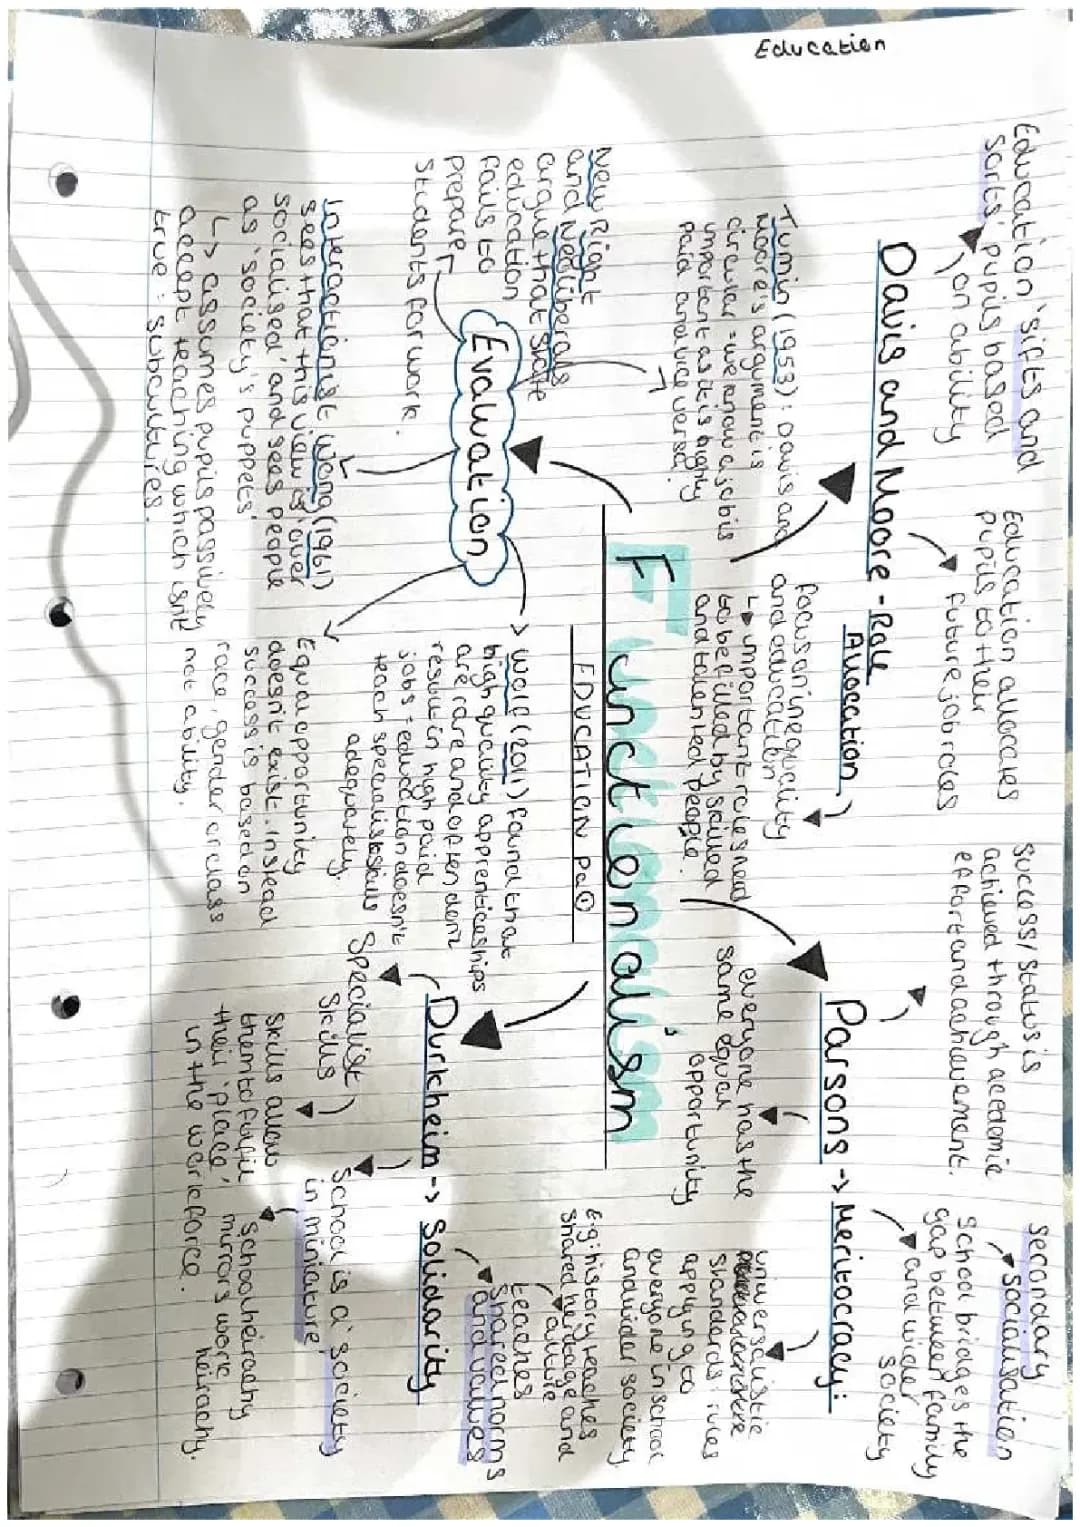 Education
Education 'sifts and
sorts' pupils based
on ability
Education allocates
pupils to their
future job roles
Success/status is
achieved through acedemic
effort and achievement.
Secondary
socialisation
School bridges the
gap between family
and wider
society
Davis and Moore - Role
Allocation
Parsons -> Meritocracy:
Tumin (1953): Davis and
Moore's argument is
circular = we know a job is
important as it is highly
paid and vice versa.
focus on inequality
and education
↳ important roles need
to be filled by skilled
and talented people.
everyone has the
same equal
opportunity
universalistic
standards: rules
apply to
everyone in school
and wider society
Functionalism
EDUCATION Pa①
New Right
and Neoliberals
argue that state
education
fails to
prepare
students for work.
Evaluation
-> Wolf (2011) found that
high quality apprenticeships
are rare and often dont
result in high paid
jobs = education doesn't
teach specialist skills
adequately.
Interactionist Wong (1961)
sees that this view is 'over
socialised' and sees people
as 'society's puppets'
↳ assumes pupils passively
accept teaching which isnt
true: subcultures.
Equal opportunity
doesn't exist. Instead
success is based on
race, gender or class
not ability.
Durkheim -> Solidarity
E.g: history teaches
shared heritage and
culture
teaches
shared norms
and values
Specialist
Skills
Skills allow
them to fulfil
their 'place'
in the workforce.
School is a 'society
in miniature'
School heirachy
mirrors work
heirachy.